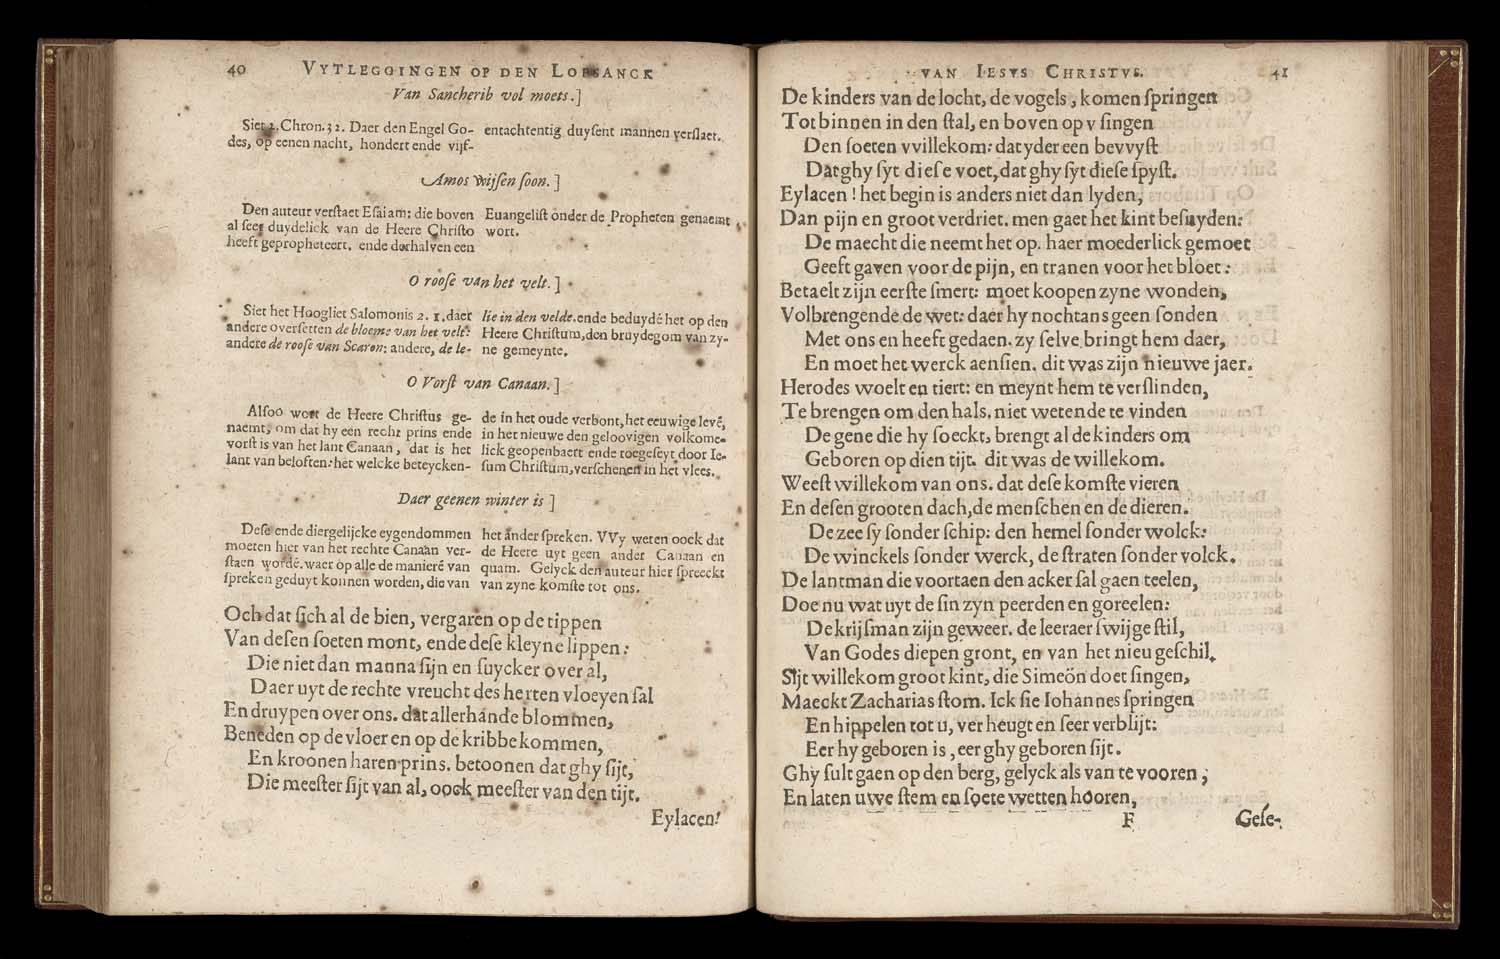 40 VYTLEGGINGEN OP DEN LOFSANCK
Van Sancherib vol moets.]
Siet 2. Chron. 32. Daer den Engel Go-
des, op eenen nacht, hondert ende vijf-
entachtentig duyſent mannen verſlaet.
Amos wijſen ſoon.]
Den auteur verſtaet Eſaiam: die boven
al ſeer duydelick van de Heere Chriſto
heeft gepropheteert, ende derhalven een
Euangeliſt onder de Propheten genaemt
wort.
O rooſe van het velt.]
Siet het Hoogliet Salomonis 2. 1. daer
andere overſetten de bloeme van het velt:
andere de rooſe van Scaron: andere, de le-
lie in den velde. ende beduydē het op den
Heere Chriſtum, den bruydegom van zy-
ne gemeynte.
O Vorſt van Canaan.]
Alſoo wort de Heere Chriſtus ge-
naemt, om dat hy een recht prins ende
vorſt is van het lant Canaan, dat is het
lant van beloften: het welcke beteycken-
de in het oude verbont, het eeuwige levē,
in het nieuwe den geloovigen volkome-
lick geopenbaert ende toegeſeyt door Ie-
ſum Chriſtum, verſchenen in het vlees.
Daer geenen winter is]
Deſe ende diergelijcke eygendommen
moeten hier van het rechte Canaan ver-
ſtaen wordē. waer op alle de manierē van
ſpreken geduyt konnen worden, die van
het ander ſpreken. VVy weten oock dat
de Heere uyt geen ander Canaan en
quam. Gelyck den auteur hier ſpreeckt
van zyne komſte tot ons.
Och dat ſich al de bien, vergaren op de tippen
Van deſen ſoeten mont, ende deſe kleyne lippen:
Die niet dan manna ſijn en ſuycker over al,
Daer uyt de rechte vreucht des herten vloeyen ſal
En druypen over ons. dat allerhande blommen,
Beneden op de vloer en op de kribbe kommen,
En kroonen haren prins. betoonen dat ghy ſijt,
Die meeſter ſijt van al, oock meeſter van den tijt.
Eylacen!
VAN IESVS CHRISTVS. 41
De kinders van de locht, de vogels, komen ſpringen
Tot binnen in den ſtal, en boven op v ſingen
Den ſoeten vvillekom: dat yder een bevvyſt
Dat ghy ſyt dieſe voet, dat ghy ſyt dieſe ſpyſt.
Eylacen! het begin is anders niet dan lyden,
Dan pijn en groot verdriet. men gaet het kint beſnyden:
De maecht die neemt het op. haer moederlick gemoet
Geeft gaven voor de pijn, en tranen voor het bloet:
Betaelt zijn eerſte ſmert: moet koopen zyne wonden,
Volbrengende de wet: daer hy nochtans geen ſonden
Met ons en heeft gedaen. zy ſelve bringt hem daer,
En moet het werck aenſien. dit was zijn nieuwe jaer.
Herodes woelt en tiert: en meynt hem te verſlinden,
Te brengen om den hals. niet wetende te vinden
De gene die hy ſoeckt, brengt al de kinders om
Geboren op dien tijt. dit was de willekom.
Weeſt willekom van ons. dat deſe komſte vieren
En deſen grooten dach, de menſchen en de dieren.
De zee ſy ſonder ſchip: den hemel ſonder wolck:
De winckels ſonder werck, de ſtraten ſonder volck.
De lantman die voortaen den acker ſal gaen teelen,
Doe nu wat uyt de ſin zyn peerden en goreelen:
De krijſman zijn geweer. de leeraer ſwijge ſtil,
Van Godes diepen gront, en van het nieu geſchil.
Sijt willekom groot kint, die Simeön doet ſingen,
Maeckt Zacharias ſtom. Ick ſie Iohannes ſpringen
En hippelen tot u, verheugt en ſeer verblijt:
Eer hy geboren is, eer ghy geboren ſijt.
Ghy ſult gaen op den berg, gelyck als van te vooren,
En laten uwe ſtem en ſoete wetten hooren,
F Geſe-